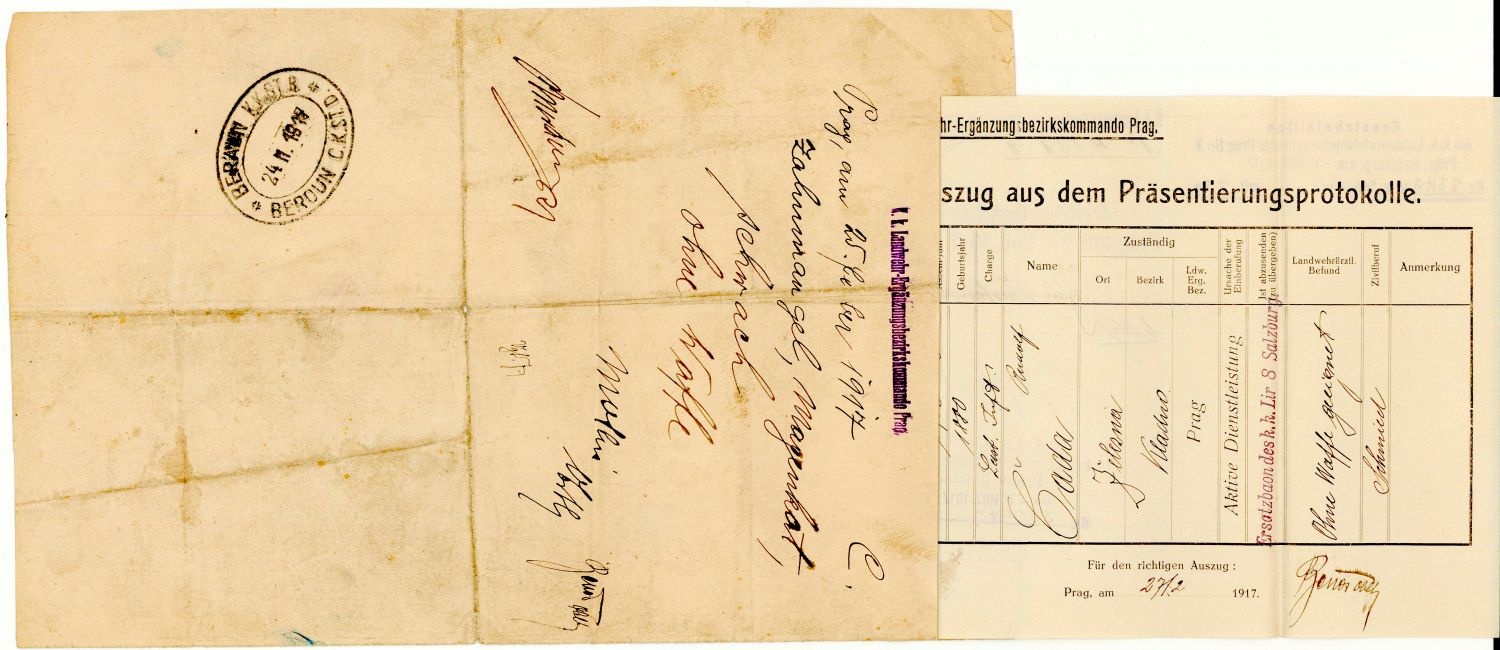 BERAUN K.K.ST.B.
24 II. 1917
BEROUN C.K.ST.D.
K. k. Landwehr-Ergänzungsbezirkskommando Prag.
Prag, am 25. Feber 1917
C.
Zahnmangel, Magenkat,
schwach
ohne Waffe
hr-Ergänzungsbezirkskommando Prag.
szug aus dem Präsentierungsprotokolle.
Geburtsjahr
Charge
Name
Zuständig
Ort
Bezirk
Ldw. Erg. Bez.
Ursache der Einberufung
Ist abzusenden (zu übergeben)
Landwehrärztl. Befund
Zivilberuf
Anmerkung
1880
Čada Rudolf
Kladno
Prag
Aktive Dienstleistung
Ersatzbaon des k. k. Lir 8 Salzburg
Ohne Waffe geeignet
Schmied
Für den richtigen Auszug:
Prag, am 27/2 1917.